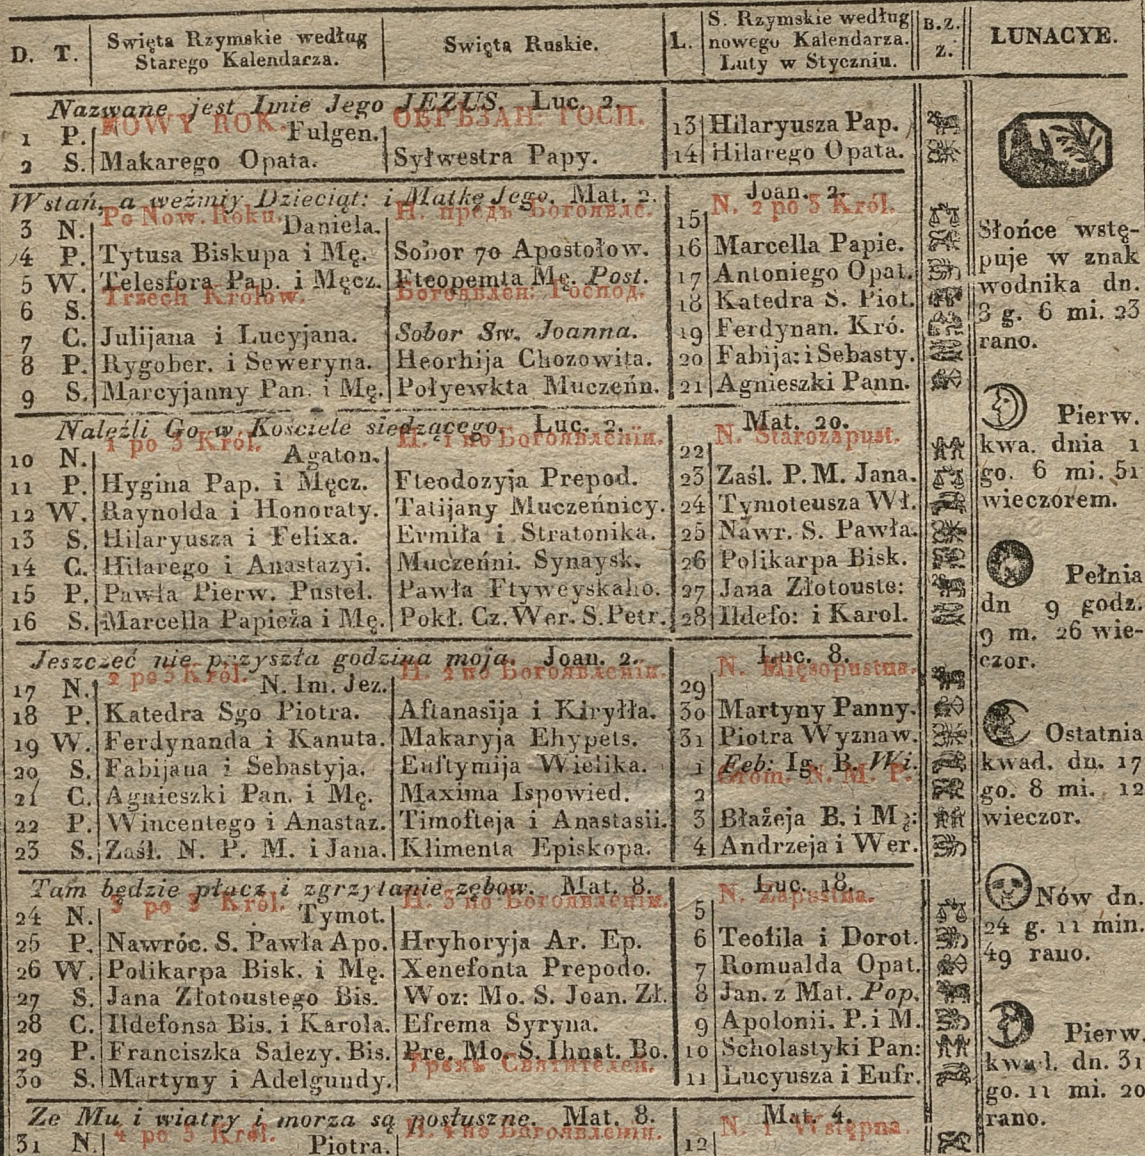 D. T. Swięta Rzymskie według Starego Kalendarza. Swięta Ruskie. L. S. Rzymskie według nowego Kalendarza. Luty w Styczniu. B.Z. Z. LUNACYE.
Nazwane jest Imie Jego JEZUS. Luc. 2.
1 P. NOWY ROK. Fulgen. ОБРѢЗАН: ГОСП. 13 Hilaryusza Pap.
2 S. Makarego Opata. Sylwestra Papy. 14 Hilarego Opata.
Wstań, a weźmiy Dziecią: i Matkę Jego. Mat. 2. Joan. 2.
3 N. Po Now. Roku. Daniela. Н. предъ Богоявле. 15 N. 2 po 3 Król.
4 P. Tytusa Biskupa i Mę. Sobor 70 Apostołow. 16 Marcella Papie.
5 W. Telesfora Pap. i Męcz. Fteopemta Mę. Post. 17 Antoniego Opat.
6 S. Trzech Królow. Богоявлен: Господ. 18 Katedra S. Piot.
7 C. Julijana i Lucyjana. Sobor Sw. Joanna. 19 Ferdynan. Kró.
8 P. Rygober. i Seweryna. Heorhija Chozowita. 20 Fabija: i Sebasty.
9 S. Marcyjanny Pan. i Mę. Połyewkta Muczeńn. 21 Agnieszki Pann.
Naleźli Go w Kościele siedzącego. Luc. 2. Mat. 20.
10 N. 1 po 3 Król. Agaton. Н. 1 по Богоявленіи. 22 N. Starozapust.
11 P. Hygina Pap. i Męcz. Fteodozyja Prepod. 23 Zaśl. P. M. Jana.
12 W. Raynolda i Honoraty. Tatijany Muczeńnicy. 24 Tymoteusza Wł.
13 S. Hilaryusza i Felixa. Ermiła i Stratonika. 25 Nawr. S. Pawła.
14 C. Hilarego i Anastazyi. Muczeńni. Synaysk. 26 Polikarpa Bisk.
15 P. Pawła Pierw. Pustel. Pawła Ftyweyskaho. 27 Jana Złotouste:
16 S. Marcella Papieża i Mę. Pokł. Cz. Wer. S. Petr. 28 Ildefo: i Karol.
Jeszczeć nie przyszła godzina moja. Joan. 2. Luc. 8.
17 N. 2 po 3 Król. N. Im. Jez. Н. 2 по Богоявленіи. 29 N. Mięsopustna.
18 P. Katedra Sgo Piotra. Aftanasija i Kiryłła. 30 Martyny Panny.
19 W. Ferdynanda i Kanuta. Makaryja Ehypets. 31 Piotra Wyznaw.
20 S. Fabijana i Sebastyja. Euftymija Wielika. 1 Feb: Ig. B. Wi.
21 C. Agnieszki Pan. i Mę. Maxima Ispowied. 2 Grom. N. M. P.
22 P. Wincentego i Anastaz. Timofteja i Anastasii. 3 Błażeja B. i Mę:
23 S. Zaśl. N. P. M. i Jana. Klimenta Episkopa. 4 Andrzeja i Wer.
Tam będzie płacz i zgrzytanie zębow. Mat. 8. Luc. 18.
24 N. 3 po 3 Król. Tymot. Н. 3 по Богоявленіи. 5 N. Zapustna.
25 P. Nawróc. S. Pawła Apo. Hryhoryja Ar. Ep. 6 Teofila i Dorot.
26 W. Polikarpa Bisk. i Mę. Xenefonta Prepodo. 7 Romualda Opat.
27 S. Jana Złotoustego Bis. Woz: Mo. S. Joan. Zł. 8 Jan. z Mat. Pop.
28 C. Ildefonsa Bis. i Karola. Efrema Syryna. 9 Apolonii. P. i M.
29 P. Franciszka Salezy. Bis. Pre. Mo. S. Ihnat. Bo. 10 Scholastyki Pan:
30 S. Martyny i Adelgundy. Трехъ Святителей. 11 Lucyusza i Eufr.
Ze Mu i wiatry i morza są posłuszne. Mat. 8. Mat. 4.
31 N. 4 po 3 Król. Piotra. Н. 4 по Богоявленіи. 12 N. 1 Wstępna.
Słońce wstę-
puje w znak
wodnika dn.
8 g. 6 mi. 23
rano.
Pierw.
kwa. dnia 1
go. 6 mi. 51
wieczorem.
Pełnia
dn 9 godz.
9 m. 26 wie-
czor.
Ostatnia
kwad. dn. 17
go. 8 mi. 12
wieczor.
Nów dn.
24 g. 11 min.
49 rano.
Pierw.
kwad. dn. 31
go. 11 mi. 20
rano.